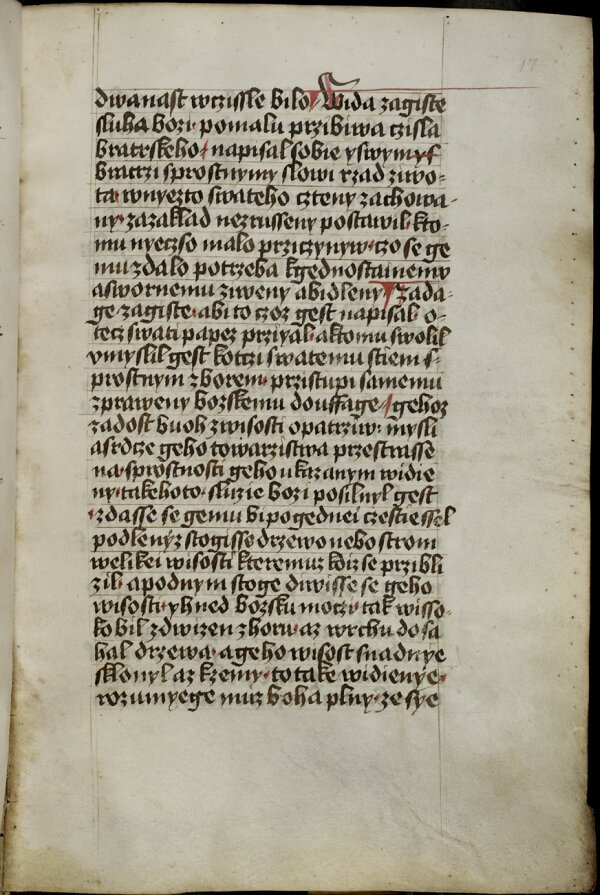 17
dwanast wczissle bilo Wida zagiste
sluha bozi pomalu przibiwa czisla
bratrskeho napisal sobie y swym
bratrzi sprostnymy slowi rzad ziwo-
ta wnyezto swateho czteny zachowa-
ny zazaklad nezrusseny postawil kto-
mu nyeczso malo prziczynyw czo se ge
mu zdalo potrzeba kgednostainemv
aswornemu ziweny abidleny Zada-
ge zagiste abi to czoz gest napisal o-
tecz swati papez prziyal aktomu swolil
vmyslil gest kotczi swatemu stiem s-
prostnym zborem przistupi samemu
zpraweny bozskemu douffage gehoz
zadost buoh zwisosti opatrziw mysli
asrdcze geho towarzistwa przestrasse
na sprostnosti geho ukazanym widie
ny takehoto sluzie bozi posilnyl gest
zdasse se gemu bi po gednei czestie ssel
podlenyz stogisse drzewo nebo strom
welikei wisosti kteremuz kdiz se przibli
zil a podnym stoge diwisse se geho
wisosti yhned bozsku moczy tak wisso-
ko bil zdwizen zhoru az wrchu dosa
hal drzewa ageho wisost snadnye
sklonyl az kzemy to take widienye
rozumyege muz boha plny ze sye